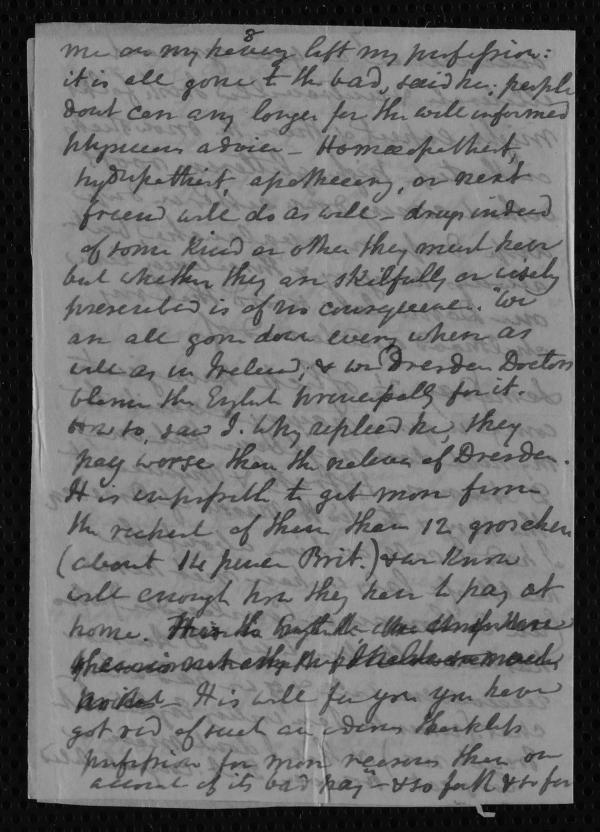 8
me on my having left my profession:
it is all gone to the bad, said he; people
dont care any longer for the well informed
physicians advice – Homœopathist,
hydropathist, apothecary, or next
friend will do as well – drugs indeed
of some kind or other they must have
but whether they are skilfully or wisely
prescribed is of no consequence. "We
are all gone down every where as
well as in Ireland, & we Dresden Doctors
blame the English principally for it.
How so, saw I. Why replied he, they
pay worse than the natives of Dresden.
It is impossible to get more from
the richest of them than 12 groschen
(about 14 pence Brit.) & we know
well enough how they have to pay at
home.
It is well for you you have
got rid of such an odious thankless
profession for more reasons than on
account of its bad pay" – & so forth & so for